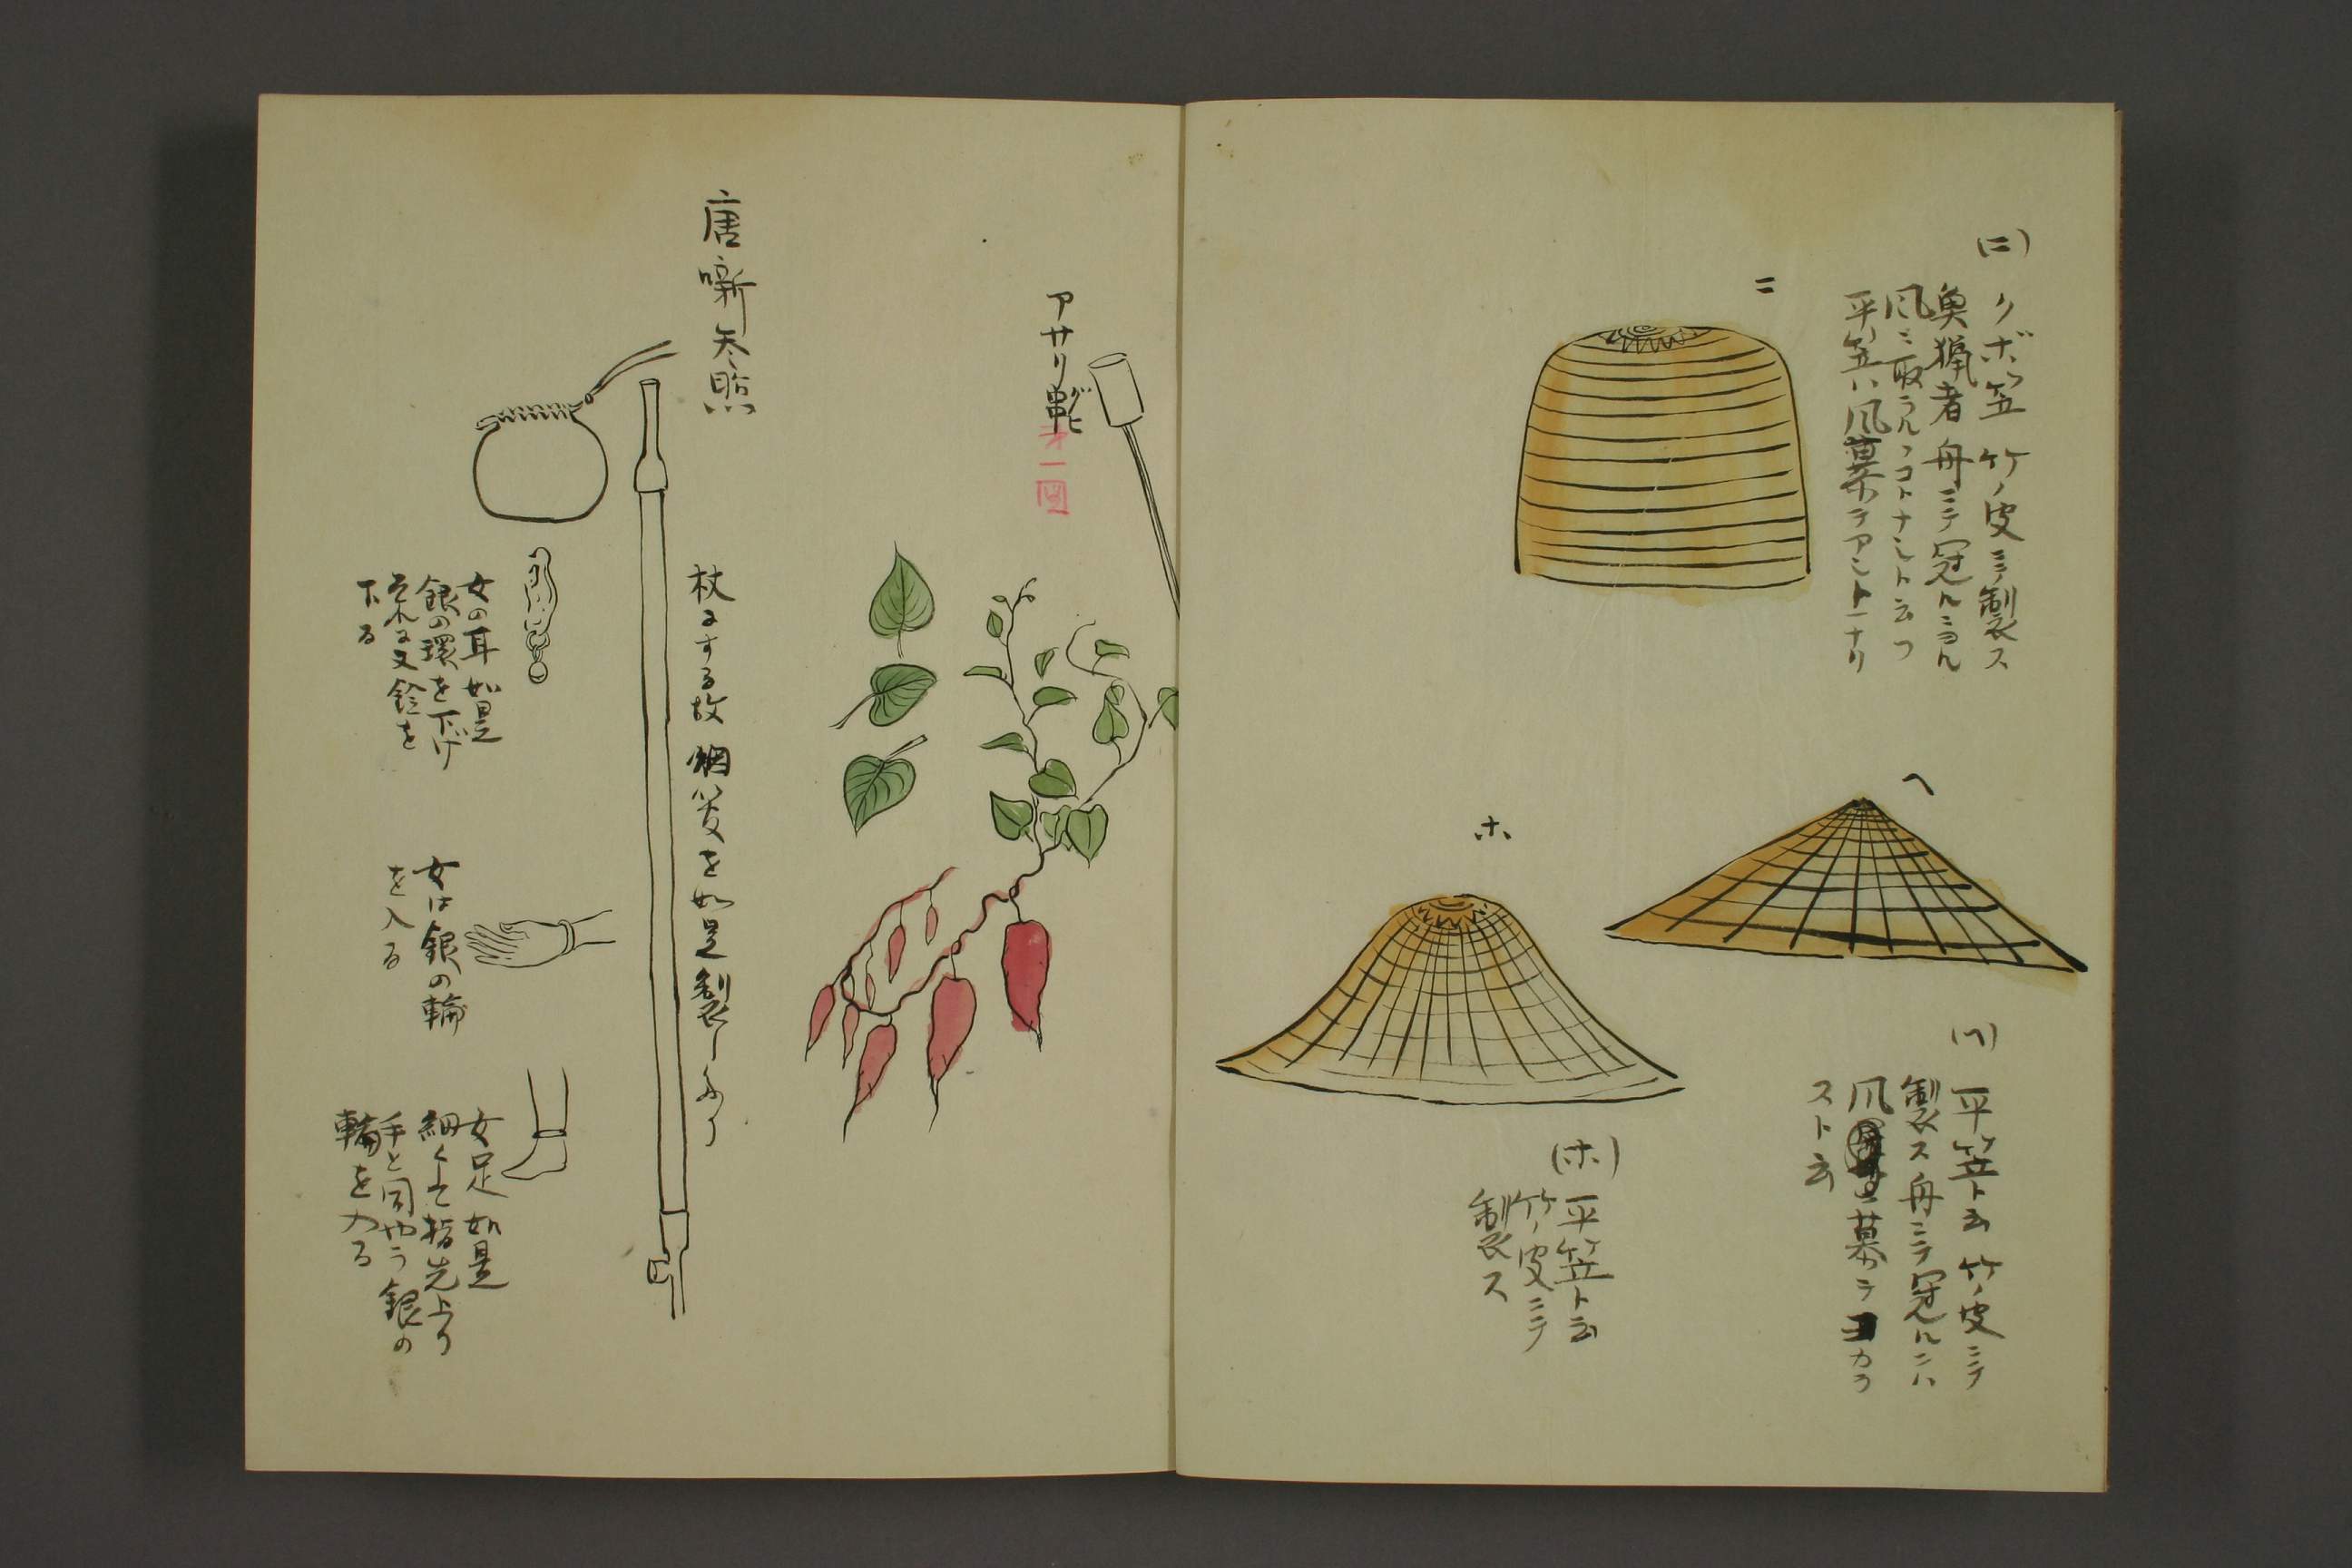 (ニ)
クボラ笠 竹ノ皮ニテ製ス
奥猟者舟ニテ冠ルニヨル
風ニ取ラルヽコトナシト云フ
平笠ハ風募テアシトナリ
ニ
ヘ
(ヘ)
平笠ト云竹ノ皮ニテ
製ス舟ニテ冠ルニハ
風募テヨカラ
スト云
ホ
(ホ)
平笠ト云
竹ノ皮ニテ
製ス
アサリ串
グヒ
才一圖
唐噺参照
杖にする故烟管を如是製しあり
女の耳如是
銀の環を下げ
それに又鈴を
下る
女は銀の輪
を入る
女足如是
細くて指先上り
手と同やう銀の
輪を入る